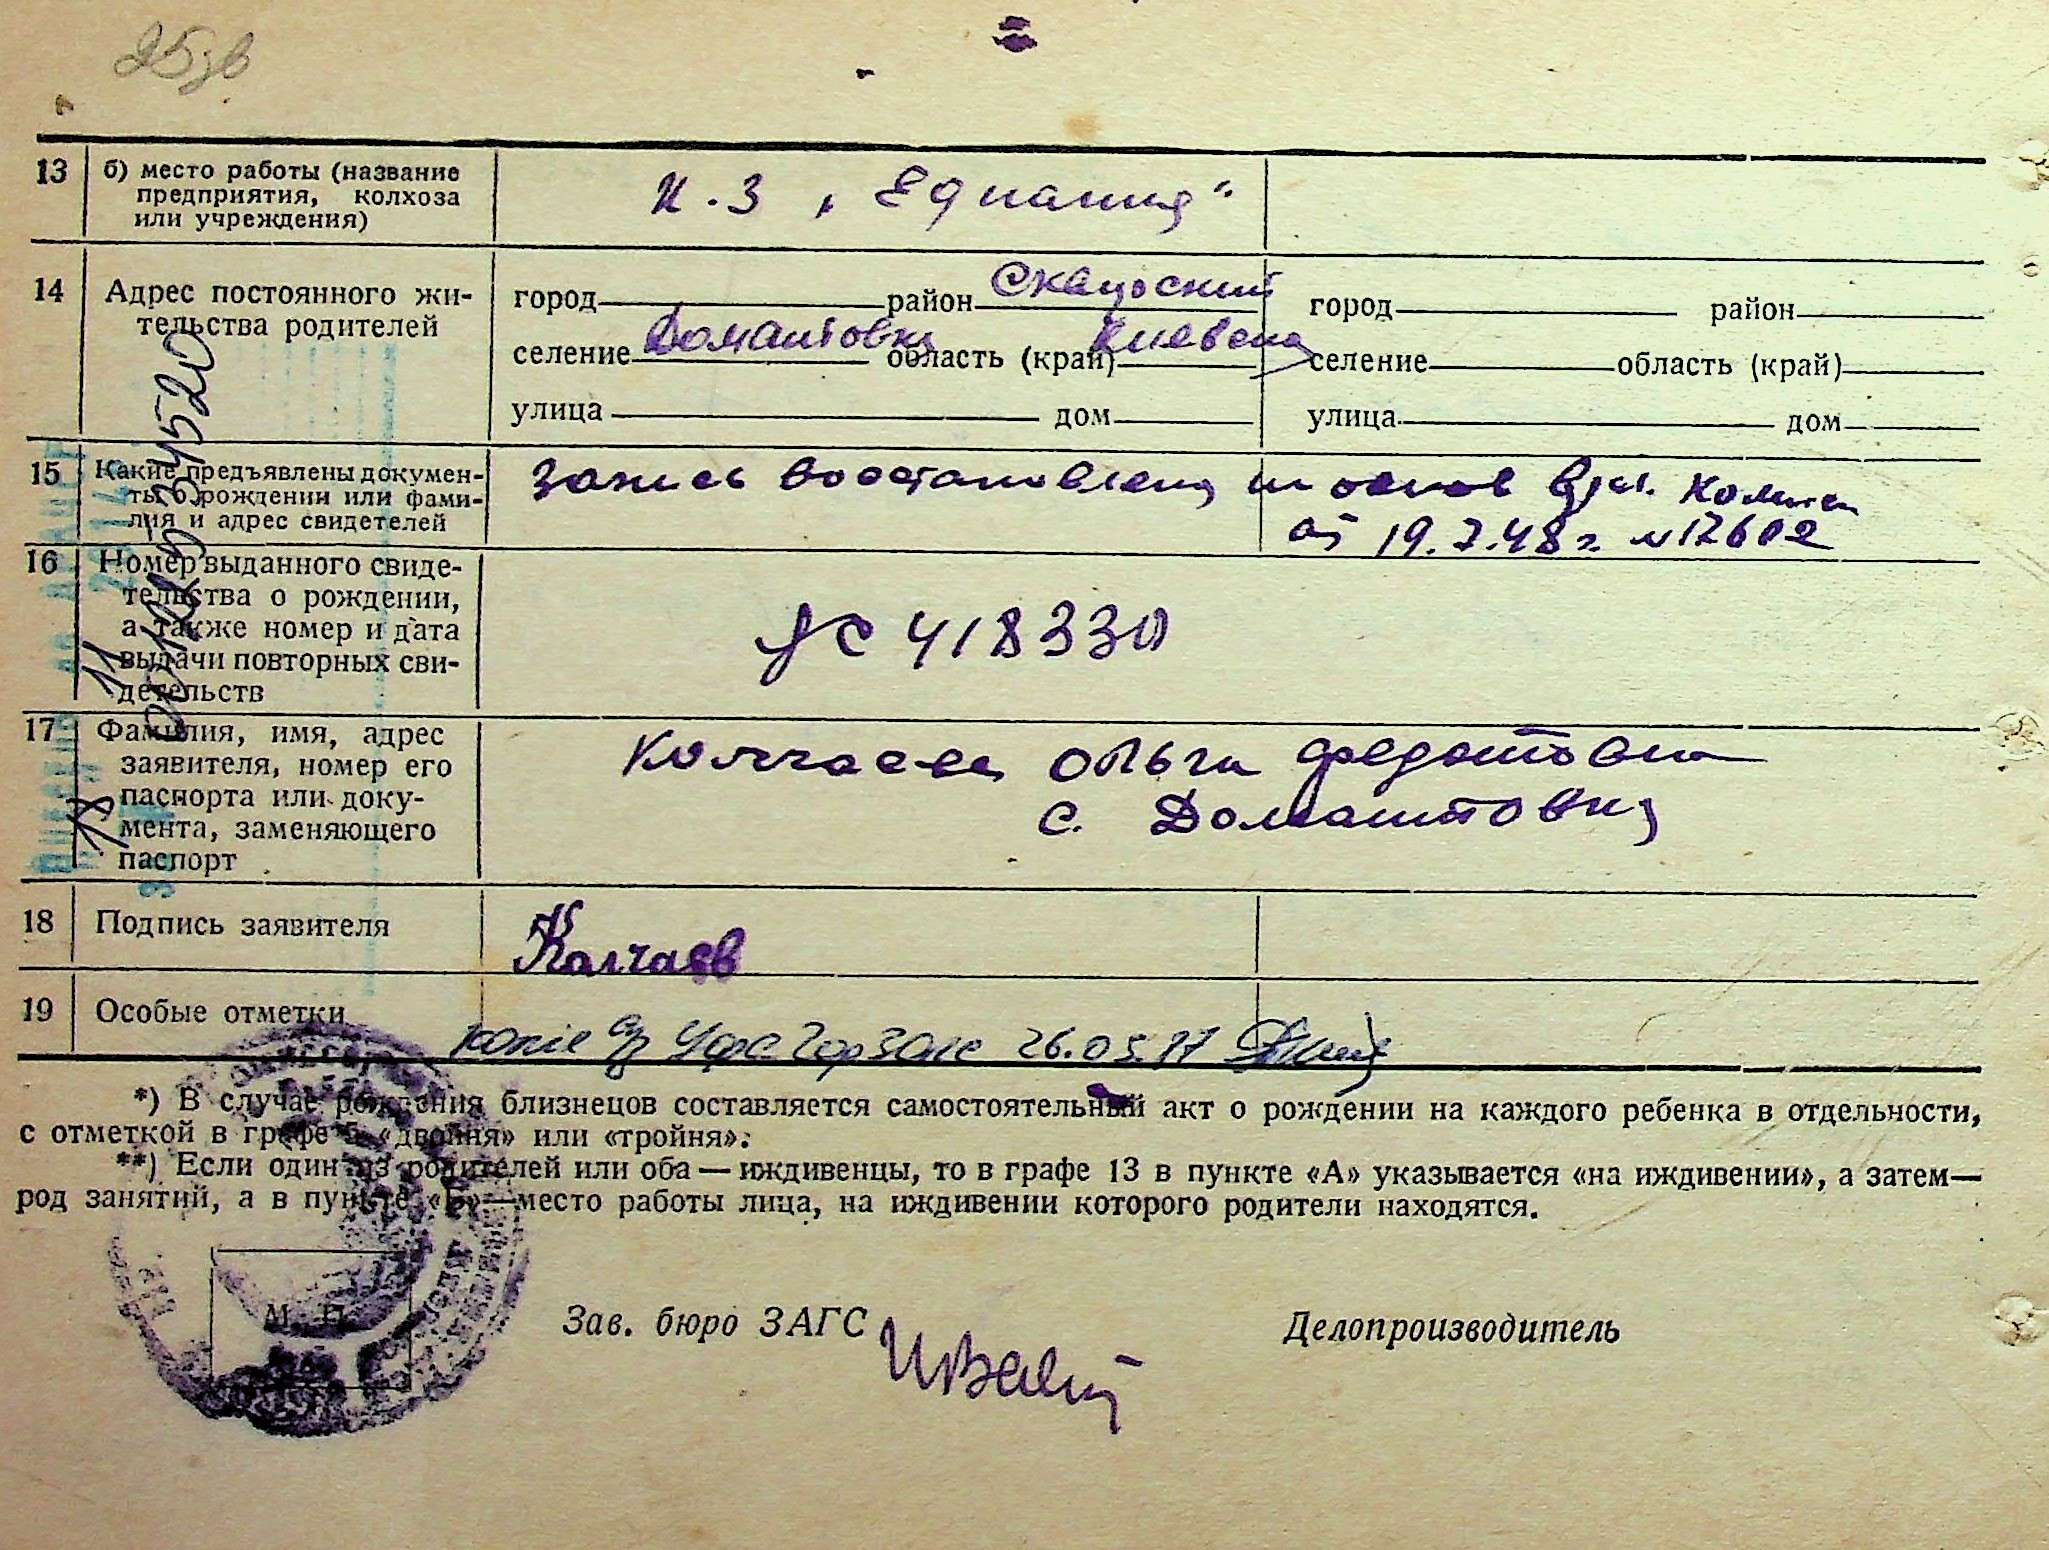 13 б) место работы (название
предприятия, колхоза
или учреждения)
К.З „Еднания"
14 Адрес постоянного жи-
тельства родителей
город район Сквирский
селение Домантовка область (край) Киевска
улица дом
город район
селение область (край)
улица дом
15 Какие предъявлены докумен-
ты о рождении или фами-
лия и адрес свидетелей
Запись восстановлена на основ
от 19.7.48 г. № 17602
16 Номер выданного свиде-
тельства о рождении,
а также номер и дата
выдачи повторных сви-
детельств
418330
17 Фамилия, имя, адрес
заявителя, номер его
паспорта или доку-
мента, заменяющего
паспорт
Колчаева Ольга Федотовна
с. Домантовка
18 Подпись заявителя
Колчаев
19 Особые отметки
26.05.77
*) В случае рождения близнецов составляется самостоятельный акт о рождении на каждого ребенка в отдельности,
с отметкой в графе 5 «двойня» или «тройня».
**) Если один из родителей или оба — иждивенцы, то в графе 13 в пункте «А» указывается «на иждивении», а затем—
род занятий, а в пункте «Б»—место работы лица, на иждивении которого родители находятся.
М. П.
Зав. бюро ЗАГС
Делопроизводитель